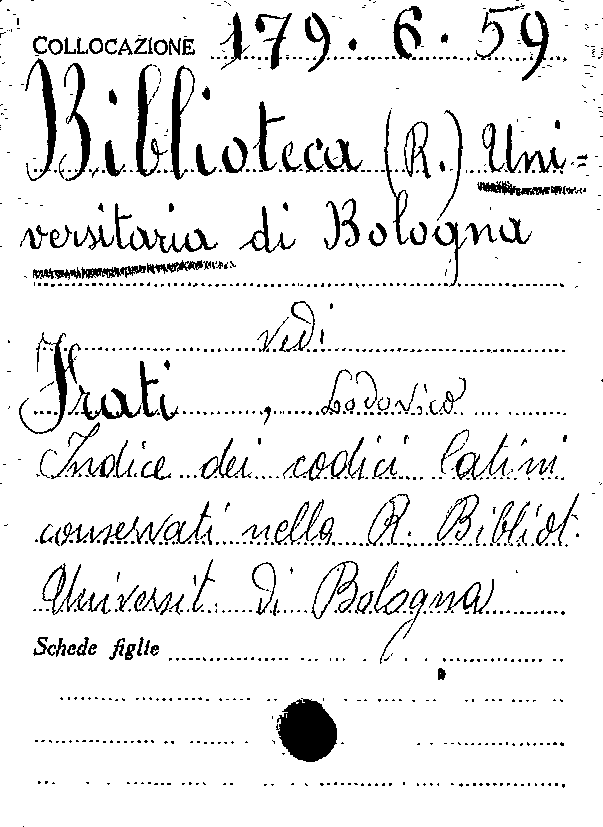 COLLOCAZIONE 179.6.59
Biblioteca (R.) Uni=
versitaria di Bologna
vedi
Frati, Lodovico
Indice dei codici latini
conservati nella R. Bibliot.
Universit. di Bologna
Schede figlie